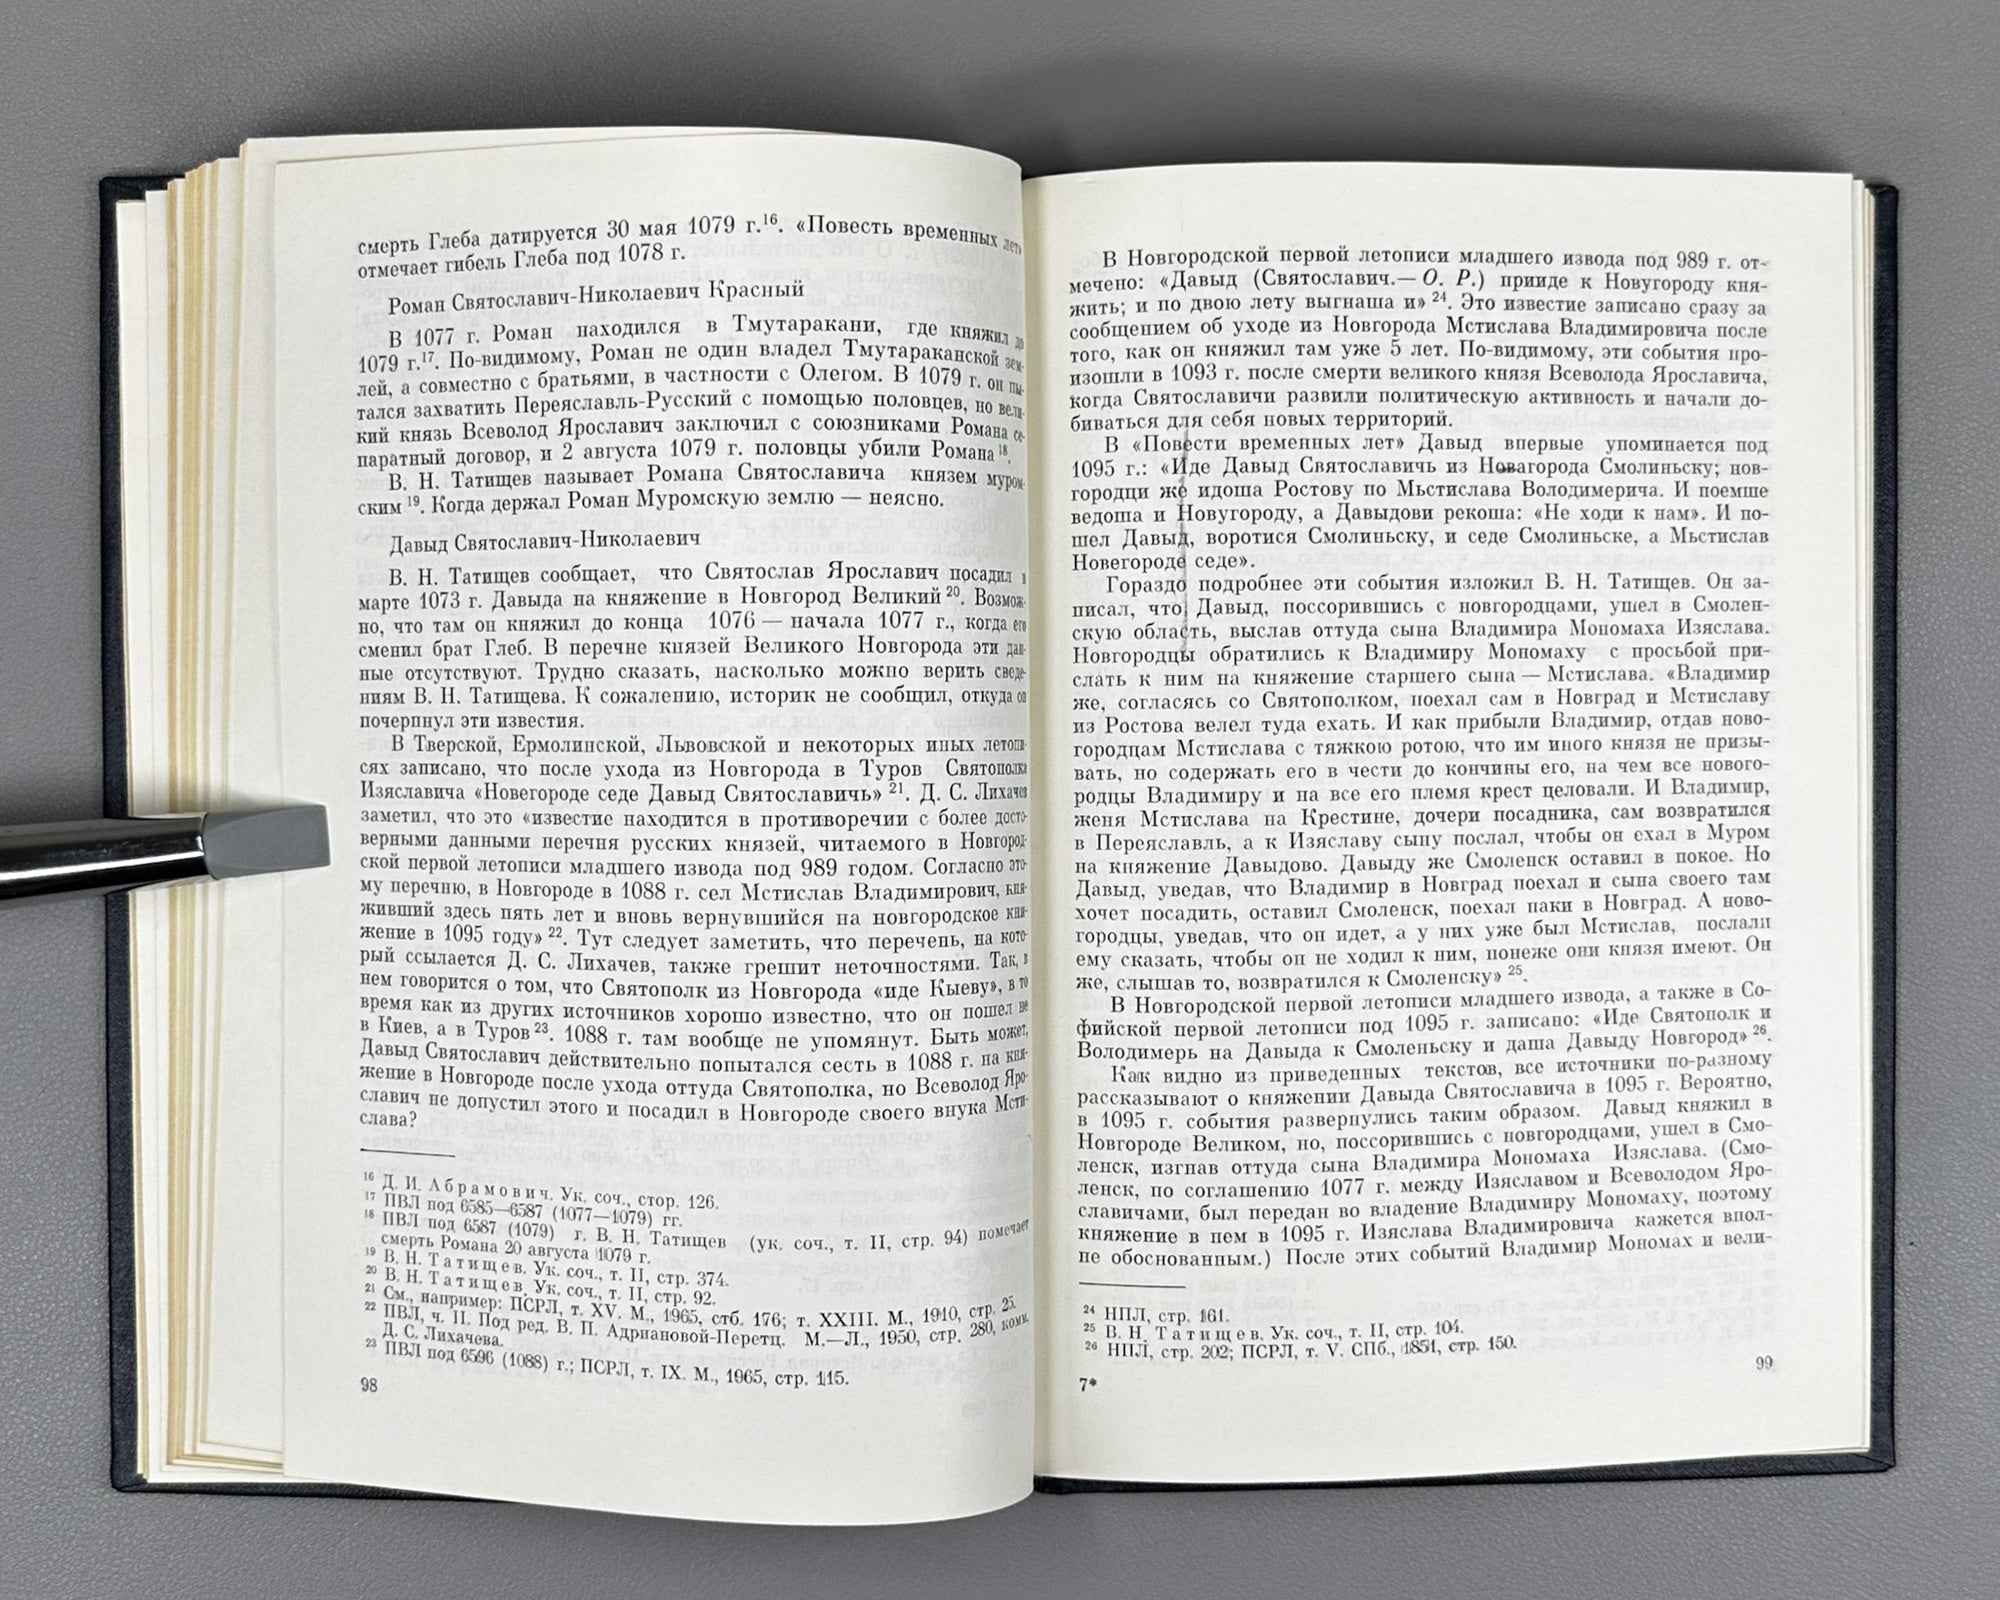 смерть Глеба датируется 30 мая 1079 г.16. «Повесть временных лет»
отмечает гибель Глеба под 1078 г.
Роман Святославич-Николаевич Красный
В 1077 г. Роман находился в Тмутаракани, где княжил до
1079 г.17. По-видимому, Роман не один владел Тмутараканской зем-
лей, а совместно с братьями, в частности с Олегом. В 1079 г. он пы-
тался захватить Переяславль-Русский с помощью половцев, но вели-
кий князь Всеволод Ярославич заключил с союзниками Романа се-
паратный договор, и 2 августа 1079 г. половцы убили Романа18.
В. Н. Татищев называет Романа Святославича князем муром-
ским19. Когда держал Роман Муромскую землю — неясно.
Давыд Святославич-Николаевич
В. Н. Татищев сообщает, что Святослав Ярославич посадил в
марте 1073 г. Давыда на княжение в Новгород Великий20. Возмож-
но, что там он княжил до конца 1076 — начала 1077 г., когда его
сменил брат Глеб. В перечне князей Великого Новгорода эти дан-
ные отсутствуют. Трудно сказать, насколько можно верить сведе-
ниям В. Н. Татищева. К сожалению, историк не сообщил, откуда он
почерпнул эти известия.
В Тверской, Ермолинской, Львовской и некоторых иных летопи-
сях записано, что после ухода из Новгорода в Туров Святополка
Изяславича «Новегороде седе Давыд Святославичь»21. Д. С. Лихачев
заметил, что это «известие находится в противоречии с более досто-
верными данными перечня русских князей, читаемого в Новгород-
ской первой летописи младшего извода под 989 годом. Согласно это-
му перечню, в Новгороде в 1088 г. сел Мстислав Владимирович, кня-
живший здесь пять лет и вновь вернувшийся на новгородское кня-
жение в 1095 году»22. Тут следует заметить, что перечень, на кото-
рый ссылается Д. С. Лихачев, также грешит неточностями. Так, в
нем говорится о том, что Святополк из Новгорода «иде Кыеву», в то
время как из других источников хорошо известно, что он пошел не
в Киев, а в Туров23. 1088 г. там вообще не упомянут. Быть может,
Давыд Святославич действительно попытался сесть в 1088 г. на кня-
жение в Новгороде после ухода оттуда Святополка, но Всеволод Яро-
славич не допустил этого и посадил в Новгороде своего внука Мсти-
слава?
16 Д. И. Абрамович. Ук. соч., стор. 126.
17 ПВЛ под 6585—6587 (1077—1079) гг.
18 ПВЛ под 6587 (1079) г. В. Н. Татищев (ук. соч., т. II, стр. 94) помечает
смерть Романа 20 августа 1079 г.
19 В. Н. Татищев. Ук. соч., т. II, стр. 374.
20 В. Н. Татищев. Ук. соч., т. II, стр. 92.
21 См., например: ПСРЛ, т. XV. М., 1965, стб. 176; т. XXIII. М., 1910, стр. 25.
22 ПВЛ, ч. II. Под ред. В. П. Адриановой-Перетц. М.—Л., 1950, стр. 280, комм.
Д. С. Лихачева.
23 ПВЛ под 6596 (1088) г.; ПСРЛ, т. IX. М., 1965, стр. 115.
98
В Новгородской первой летописи младшего извода под 989 г. от-
мечено: «Давыд (Святославич.— О. Р.) прииде к Новугороду кня-
жить; и по двою лету выгнаша и»24. Это известие записано сразу за
сообщением об уходе из Новгорода Мстислава Владимировича после
того, как он княжил там уже 5 лет. По-видимому, эти события про-
изошли в 1093 г. после смерти великого князя Всеволода Ярославича,
когда Святославичи развили политическую активность и начали до-
биваться для себя новых территорий.
В «Повести временных лет» Давыд впервые упоминается под
1095 г.: «Иде Давыд Святославичь из Новагорода Смолиньску; нов-
городци же идоша Ростову по Мьстислава Володимерича. И поемше
ведоша и Новугороду, а Давыдови рекоша: «Не ходи к нам». И по-
шел Давыд, воротися Смолиньску, и седе Смолиньске, а Мьстислав
Новегороде седе».
Гораздо подробнее эти события изложил В. Н. Татищев. Он за-
писал, что Давыд, поссорившись с новгородцами, ушел в Смолен-
скую область, выслав оттуда сына Владимира Мономаха Изяслава.
Новгородцы обратились к Владимиру Мономаху с просьбой при-
слать к ним на княжение старшего сына — Мстислава. «Владимир
же, согласясь со Святополком, поехал сам в Новград и Мстиславу
из Ростова велел туда ехать. И как прибыли Владимир, отдав ново-
городцам Мстислава с тяжкою ротою, что им иного князя не призы-
вать, но содержать его в чести до кончины его, на чем все нового-
родцы Владимиру и на все его племя крест целовали. И Владимир,
женя Мстислава на Крестине, дочери посадника, сам возвратился
в Переяславль, а к Изяславу сыну послал, чтобы он ехал в Муром
на княжение Давыдово. Давыду же Смоленск оставил в покое. Но
Давыд, уведав, что Владимир в Новград поехал и сына своего там
хочет посадить, оставил Смоленск, поехал паки в Новград. А ново-
городцы, уведав, что он идет, а у них уже был Мстислав, послали
ему сказать, чтобы он не ходил к ним, понеже они князя имеют. Он
же, слышав то, возвратился к Смоленску»25.
В Новгородской первой летописи младшего извода, а также в Со-
фийской первой летописи под 1095 г. записано: «Иде Святополк и
Володимерь на Давыда к Смоленьску и даша Давыду Новгород»26.
Как видно из приведенных текстов, все источники по-разному
рассказывают о княжении Давыда Святославича в 1095 г. Вероятно,
в 1095 г. события развернулись таким образом. Давыд княжил в
Новгороде Великом, но, поссорившись с новгородцами, ушел в Смо-
ленск, изгнав оттуда сына Владимира Мономаха Изяслава. (Смо-
ленск, по соглашению 1077 г. между Изяславом и Всеволодом Яро-
славичами, был передан во владение Владимиру Мономаху, поэтому
княжение в нем в 1095 г. Изяслава Владимировича кажется впол-
не обоснованным.) После этих событий Владимир Мономах и вели-
24 НПЛ, стр. 161.
25 В. Н. Татищев. Ук. соч., т. II, стр. 104.
26 НПЛ, стр. 202; ПСРЛ, т. V. СПб., 1851, стр. 150.
7*
99